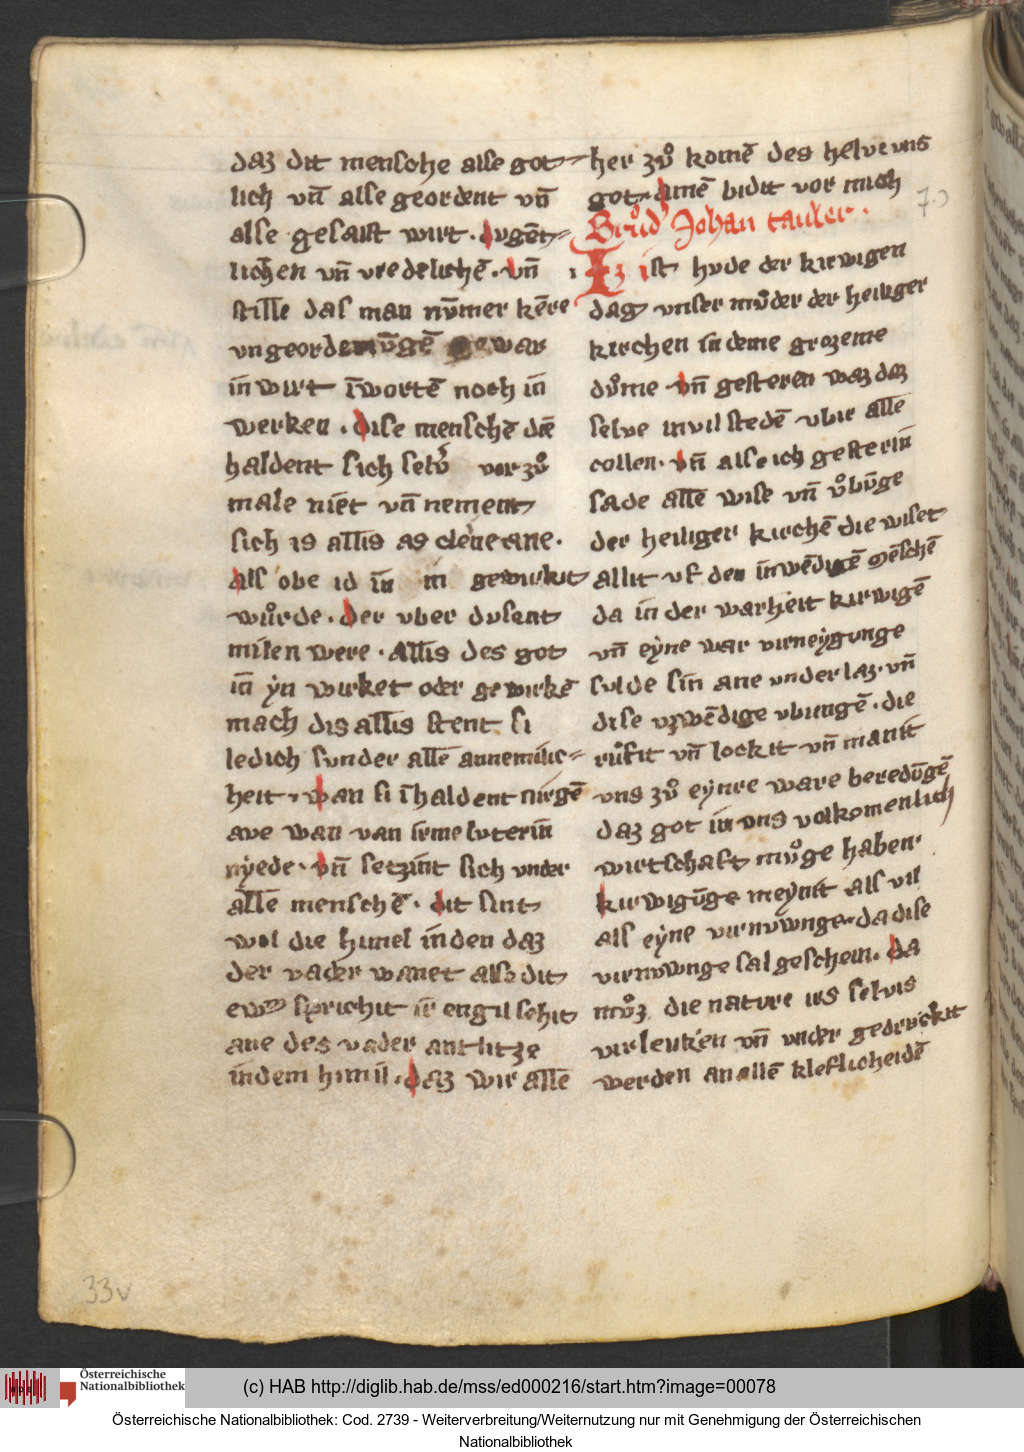 daz dit mensche alse got-
lich vn̄ alse geordent vn̄
alse gesast wirt. dugēt-
lichen vn̄ vredelichē. vn̄
stille das man nv̄mer kēre
vngeorden v̄gē gewar
in wirt ī worten noch in
werken. dise menschē die
haldent sich selv̄ vor zuͦ
male niēt vn̄ nement
sich is allis as cleine ane.
als obe id in in gewirkit
wuͦrde. der vber dusent
milen were. Allis des got
in yn wirket oder gewirkē
mach dis allis stent si
ledich sunder allē annemilic-
heit. wan si īhaldent nirgē
ane wan van irme luterin
nyede. vn̄ setzint sich vnder
allē menschē. dit sint
wol die himel inden daz
der vader wanet also dit
ewā sprichit ir engil sehit
ane des vader antlitze
indem himil. daz wir allē
her zuͦ komē des helve vns
got. amē bidit vor mich
Bruͦd' Johan tauler.
Iz ist hude der kirwigen
dag vnser muͦder der heiliger
kirchen in deme grozeme
duͦme vn̄ gesteren waz daz
selve in vil stedē vbir allē
collen. vn̄ alse ich gesterin
sade allē wise vn̄ vͦbūge
der heiliger kirchē die wiset
allit vf den inwēdigē mēschē
da in der warheit kirwigē
vn̄ eyne war virneygunge
sulde sin ane vnderlaz. vn̄
dise vzwēdige vbungē. die
ruͦfit vn̄ lockit vn̄ manit
vns zuͦ eynre ware beredūgē
daz got in vns volkomenlich
wirtschaft muͦge haben.
kirwigūge meynit als vil
als eyne virnvwnge. da dise
virnvwnge sal geschein. da
muͦz die nature irs selvis
virleuken vn̄ vnder gedruckit
werden an allē kleflicheidē
70
33v
Österreichische
Nationalbibliothek
(c) HAB http://diglib.hab.de/mss/ed000216/start.htm?image=00078
Österreichische Nationalbibliothek: Cod. 2739 - Weiterverbreitung/Weiternutzung nur mit Genehmigung der Österreichischen
Nationalbibliothek